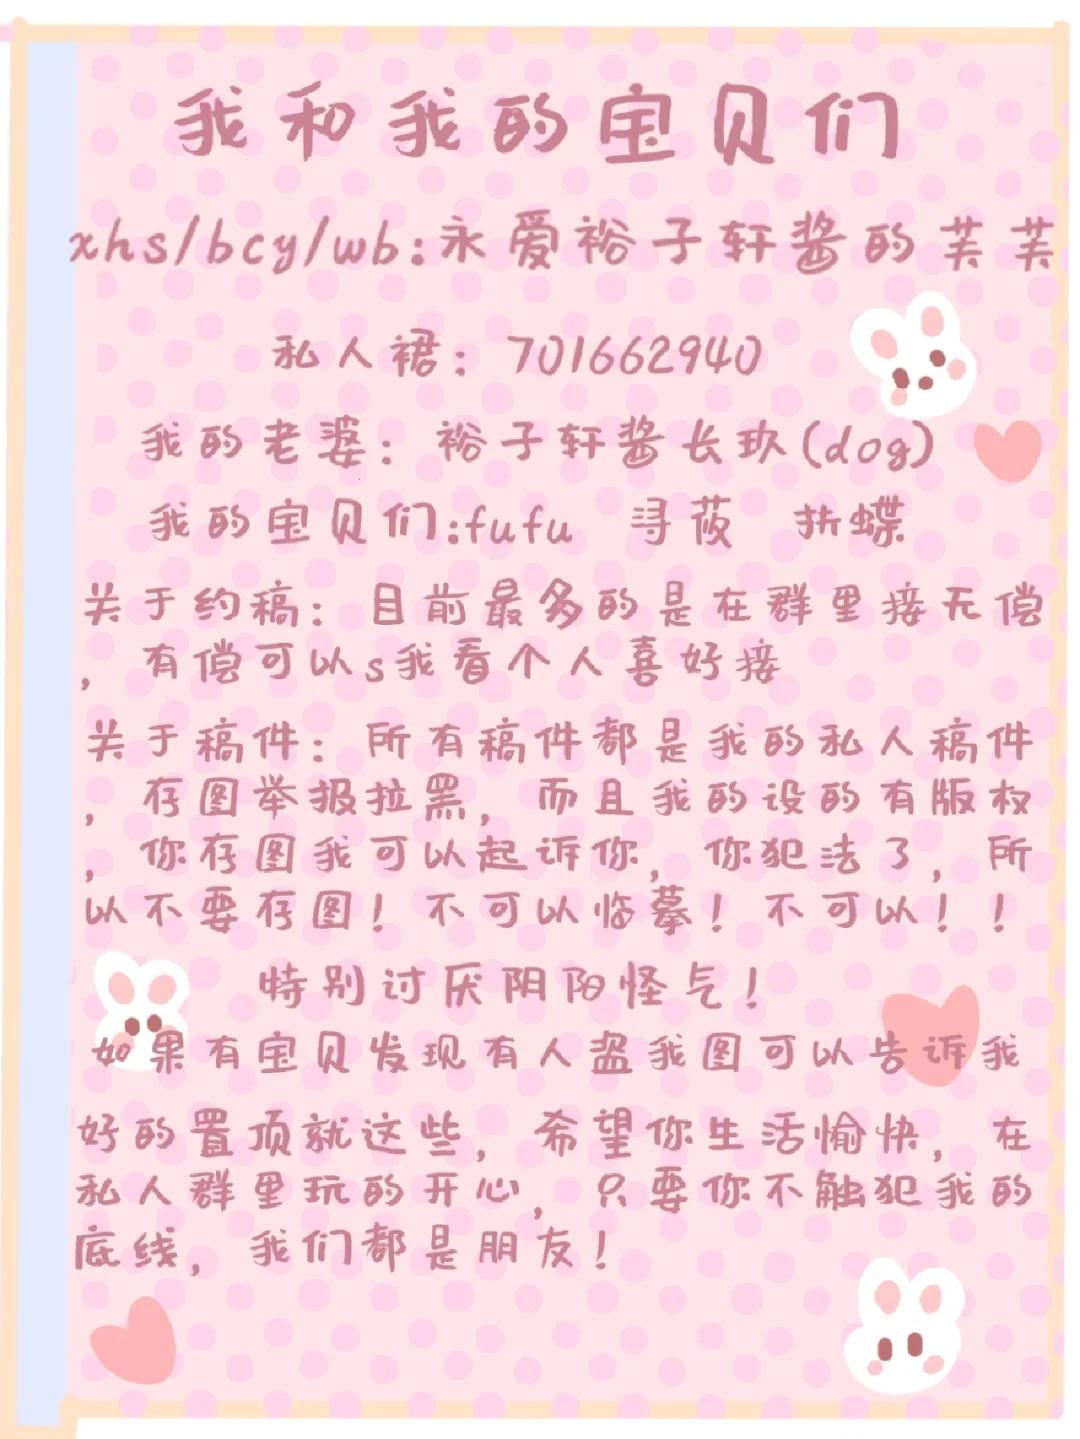 我和我的宝贝们
xhs/bcy/wb:永爱裕子轩酱的芙芙
私人裙：701662940
我的老婆：裕子轩酱长玖(dog)
我的宝贝们:fufu 浔莜 折蝶
关于约稿：目前最多的是在群里接无偿
，有偿可以s我看个人喜好接
关于稿件：所有稿件都是我的私人稿件
，存图举报拉黑，而且我的设的有版权
，你存图我可以起诉你，你犯法了，所
以不要存图！不可以临摹！不可以！！
特别讨厌阴阳怪气！
如果有宝贝发现有人盗我图可以告诉我
好的置顶就这些，希望你生活愉快，在
私人群里玩的开心，只要你不触犯我的
底线，我们都是朋友！